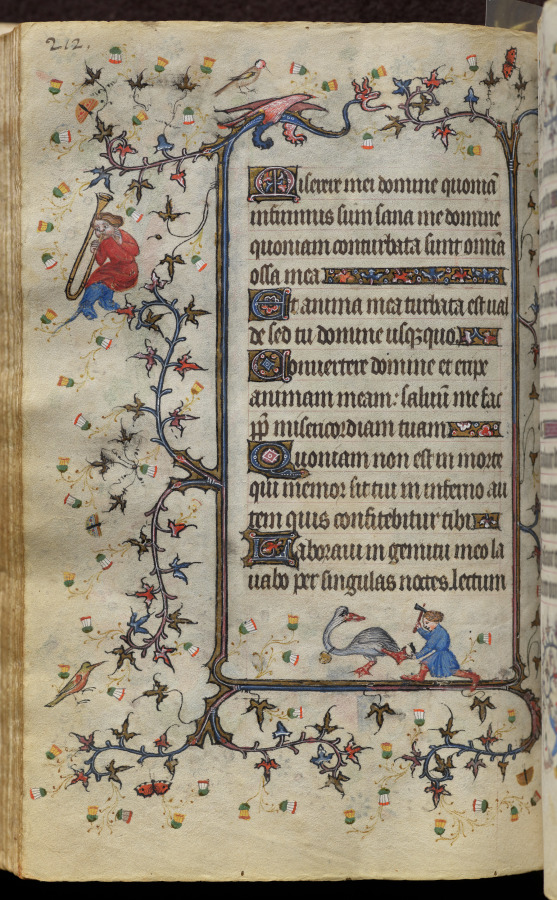 212.
Miserere mei domine quoniā
infirmus sum sana me domine
quoniam conturbata sunt omnia
ossa mea
Et anima mea turbata est ual
de sed tu domine usqꝫquo
Conuertere domine et eripe
animam meam: saluū me fac
pp̄ misericordiam tuam
Quoniam non est in morte
qui memor sit tui in inferno au
tem quis confitebitur tibi
Laboraui in gemitu meo la
uabo per singulas noctes. lectum